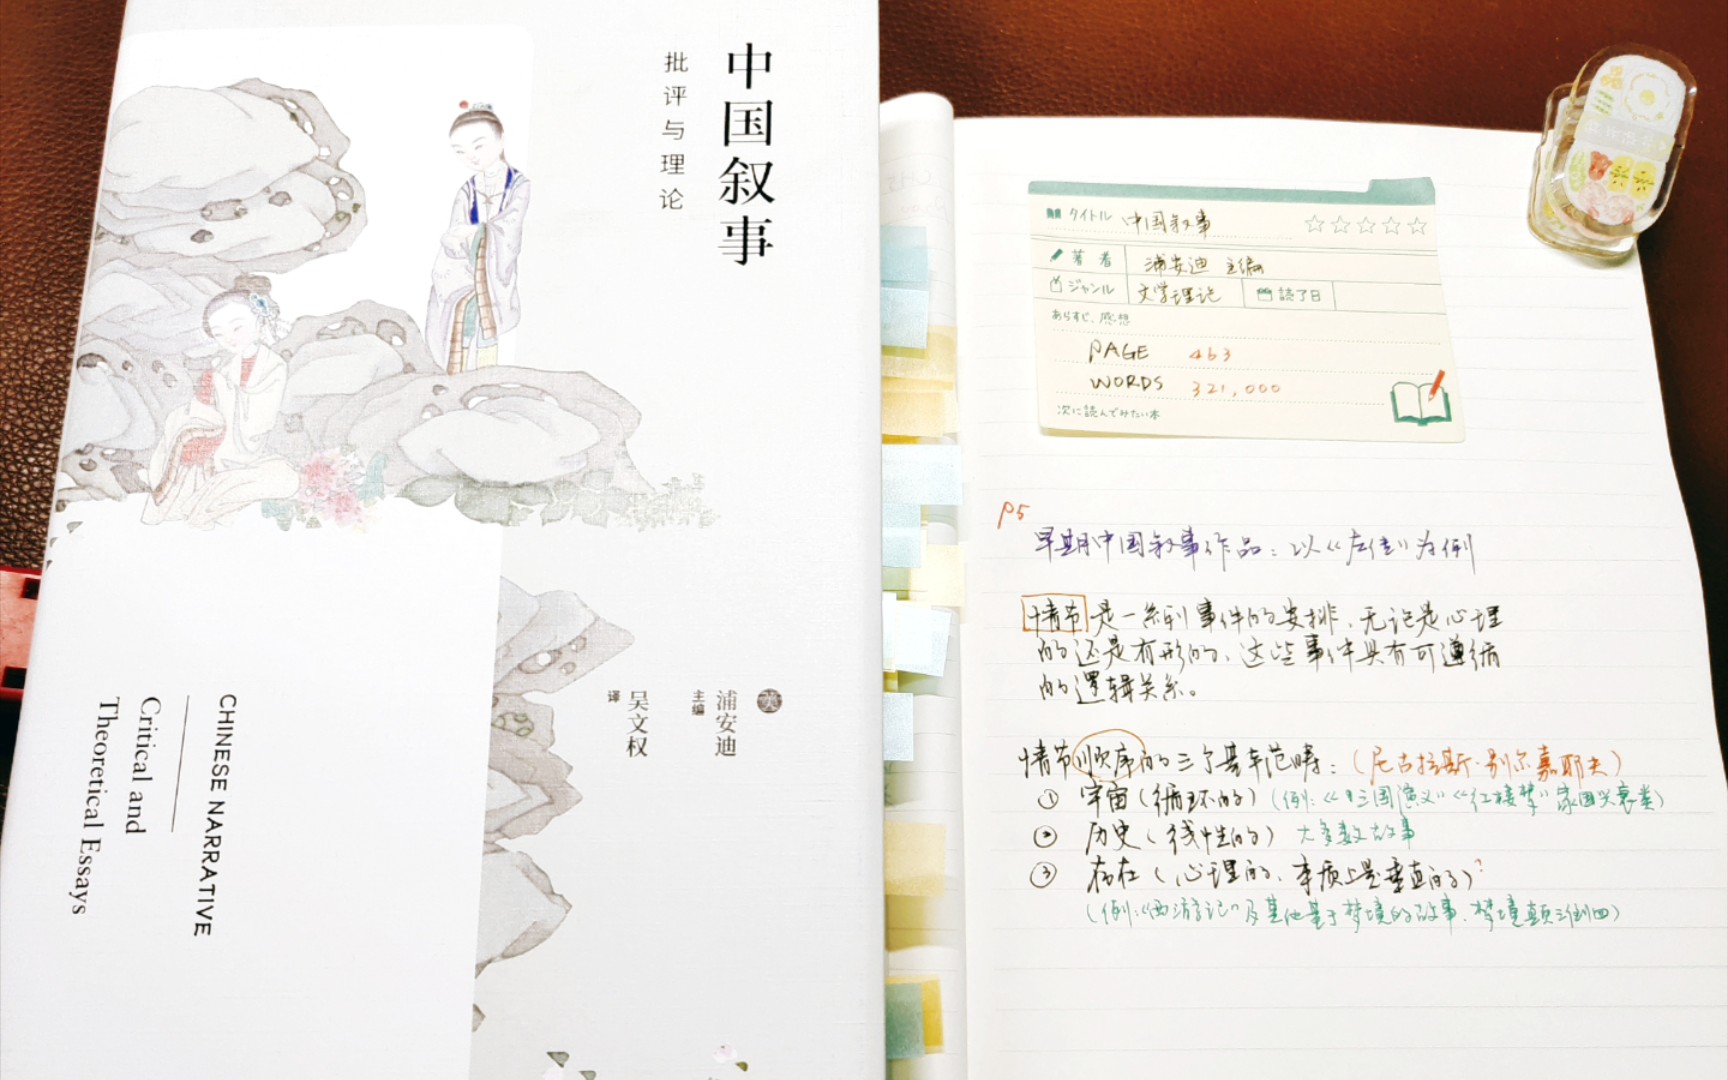 中国叙事
批评与理论
美
浦安迪
主编
吴文权
译
CHINESE NARRATIVE
Critical and
Theoretical Essays
タイトル 中国叙事
著者 浦安迪 主编
ジャンル 文学理论 読了日
あらすじ、感想
PAGE 463
WORDS 321,000
次に読んでみたい本
P5
早期中国叙事作品：以《左传》为例
情节是一系列事件的安排，无论是心理
的还是有形的，这些事件具有可遵循
的逻辑关系。
情节顺序的三个基本范畴：（尼古拉斯·别尔嘉耶夫）
① 宇宙（循环的）（例：《三国演义》《红楼梦》家国兴衰类）
② 历史（线性的） 大多数故事
③ 存在（心理的，本质上是垂直的）？
（例：《西游记》及其他基于梦境的故事，梦境颠三倒四）